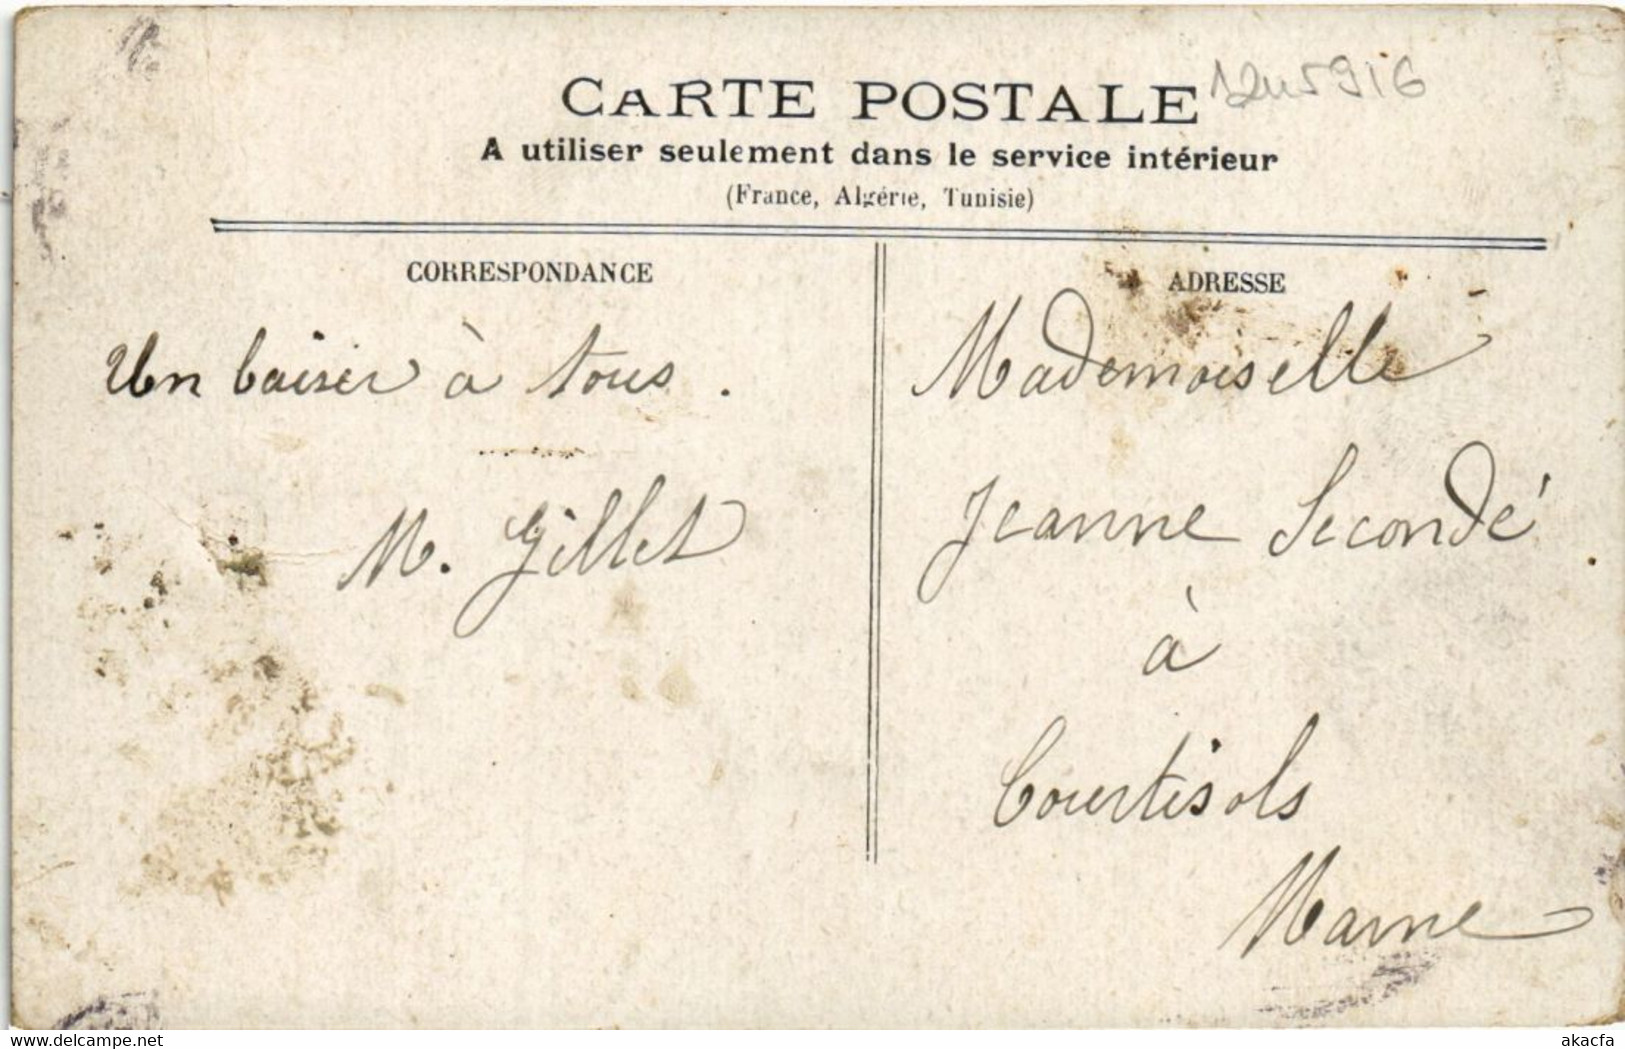 CARTE POSTALE
A utiliser seulement dans le service intérieur
(France, Algérie, Tunisie)
CORRESPONDANCE
Un baiser à tous.
M. Gillet
ADRESSE
Mademoiselle
Jeanne Secondé
à
Courtisols
Marne
delcampe.net
akacfa